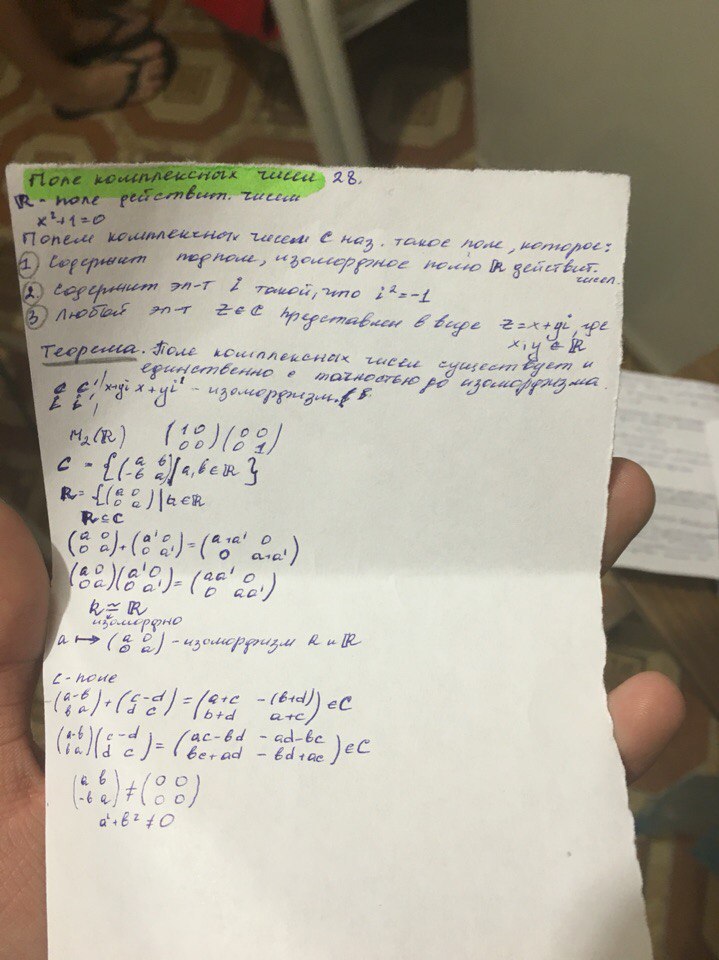 Поле комплексных чисел 28.
R - поле действит. чисел
x²+1=0
Полем комплексных чисел C наз. такое поле, которое:
1 Содержит подполе, изоморфное полю R действит. чисел.
2. Содержит эл-т i такой, что i²=-1
3 Любой эл-т z∈C представлен в виде z=x+yi, где
x,y∈R
Теорема. Поле комплексных чисел существует и
единственно с точностью до изоморфизма.
C C' x+yi x+yi' - изоморфизм.
i i'
M₂(R) (1 0; 0 0) (0 0; 0 1)
C = {(a b; -b a) | a,b∈R}
R = {(a 0; 0 a) | a∈R
R⊆C
(a 0; 0 a)+(a' 0; 0 a')=(a+a' 0; 0 a+a')
(a 0; 0 a)(a' 0; 0 a')=(aa' 0; 0 aa')
R ≅ R
изоморфно
a ↦ (a 0; 0 a) - изоморфизм R и R
C - поле
(a -b; b a)+(c -d; d c)=(a+c -(b+d); b+d a+c)∈C
(a -b; b a)(c -d; d c)=(ac-bd -ad-bc; bc+ad -bd+ac)∈C
(a b; -b a)≠(0 0; 0 0)
a²+b²≠0